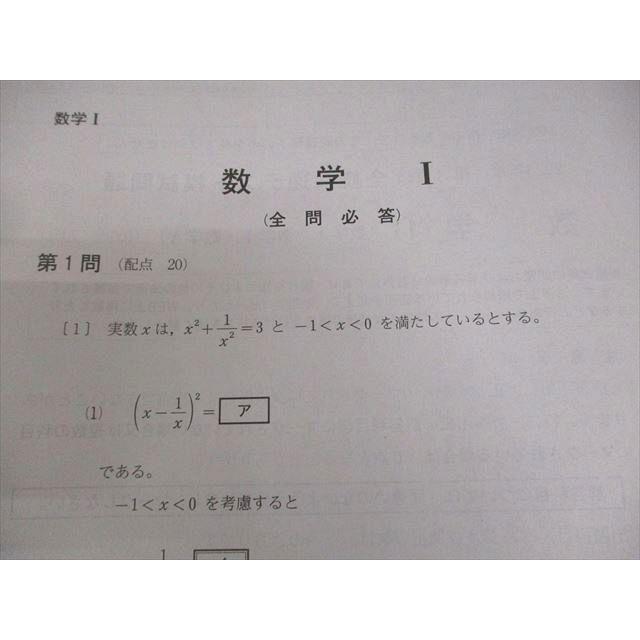 数学 I
数 学 I
(全 問 必 答)
第1問 (配点 20)
〔1〕 実数 x は, x² + 1/x² = 3 と −1 < x < 0 を満たしているとする。
(1) (x − 1/x)² = ア
である。
−1 < x < 0 を考慮すると
1